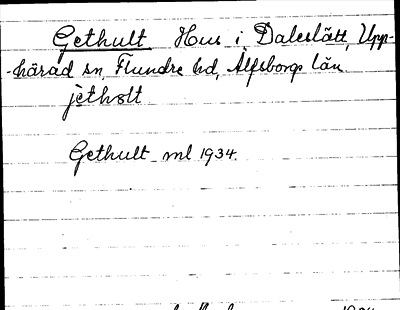 Gethult Hus i Daleslätt, Upp-
-härad sn, Flundre hd, Älfsborgs län
jethølt
Gethult ml 1934.